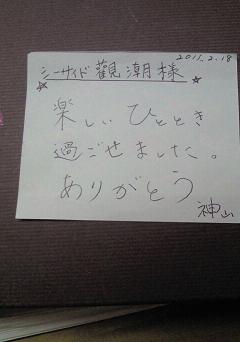 2011.2.18
シーサイド觀潮様
楽しいひととき
過ごせました。
ありがとう
神山